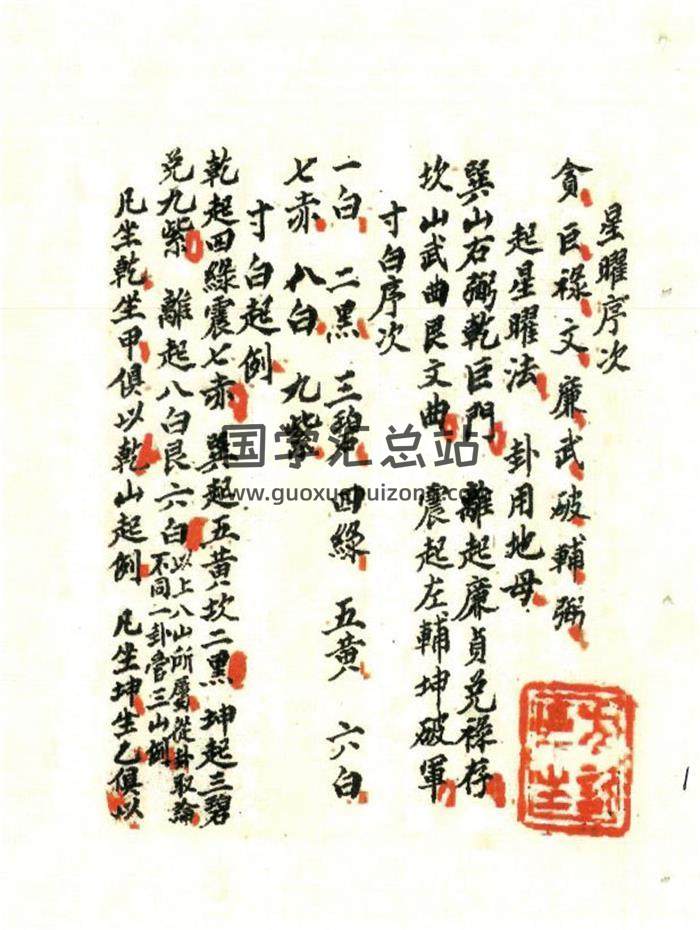 星曜序次
貪巨祿文廉武破輔弼
起星曜法　卦用地母
巽山右弼乾巨門　離起廉貞兌祿存
坎山武曲艮文曲　震起左輔坤破軍
寸白序次
一白　二黑　三碧　四綠　五黃　六白
七赤　八白　九紫
寸白起例
乾起四綠震七赤　巽起五黃坎二黑　坤起三碧
兌九紫　離起八白艮六白
以上八山所屬從卦取論
不同一卦管三山例
凡坐乾坐甲俱以乾山起例　凡坐坤坐乙俱以
国学汇总站
www.guoxuehuizong.com
1